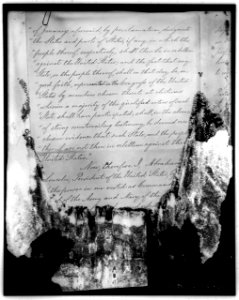 of January aforesaid, by proclamation, designate
the States and parts of States, if any, in which the
people thereof, respectively, shall then be in rebellion
against the United States; and the fact that any
State, or the people thereof, shall on that day be, in
good faith, represented in the Congress of the United
States by members chosen thereto at elections
wherein a majority of the qualified voters of such
State shall have participated, shall, in the absence
of strong countervailing testimony, be deemed con-
clusive evidence that such State, and the people
thereof, are not then in rebellion against the
United States."
Now, therefore I, Abraham
Lincoln, President of the United States,
the power in me vested as Commander
of the Army and Navy of the